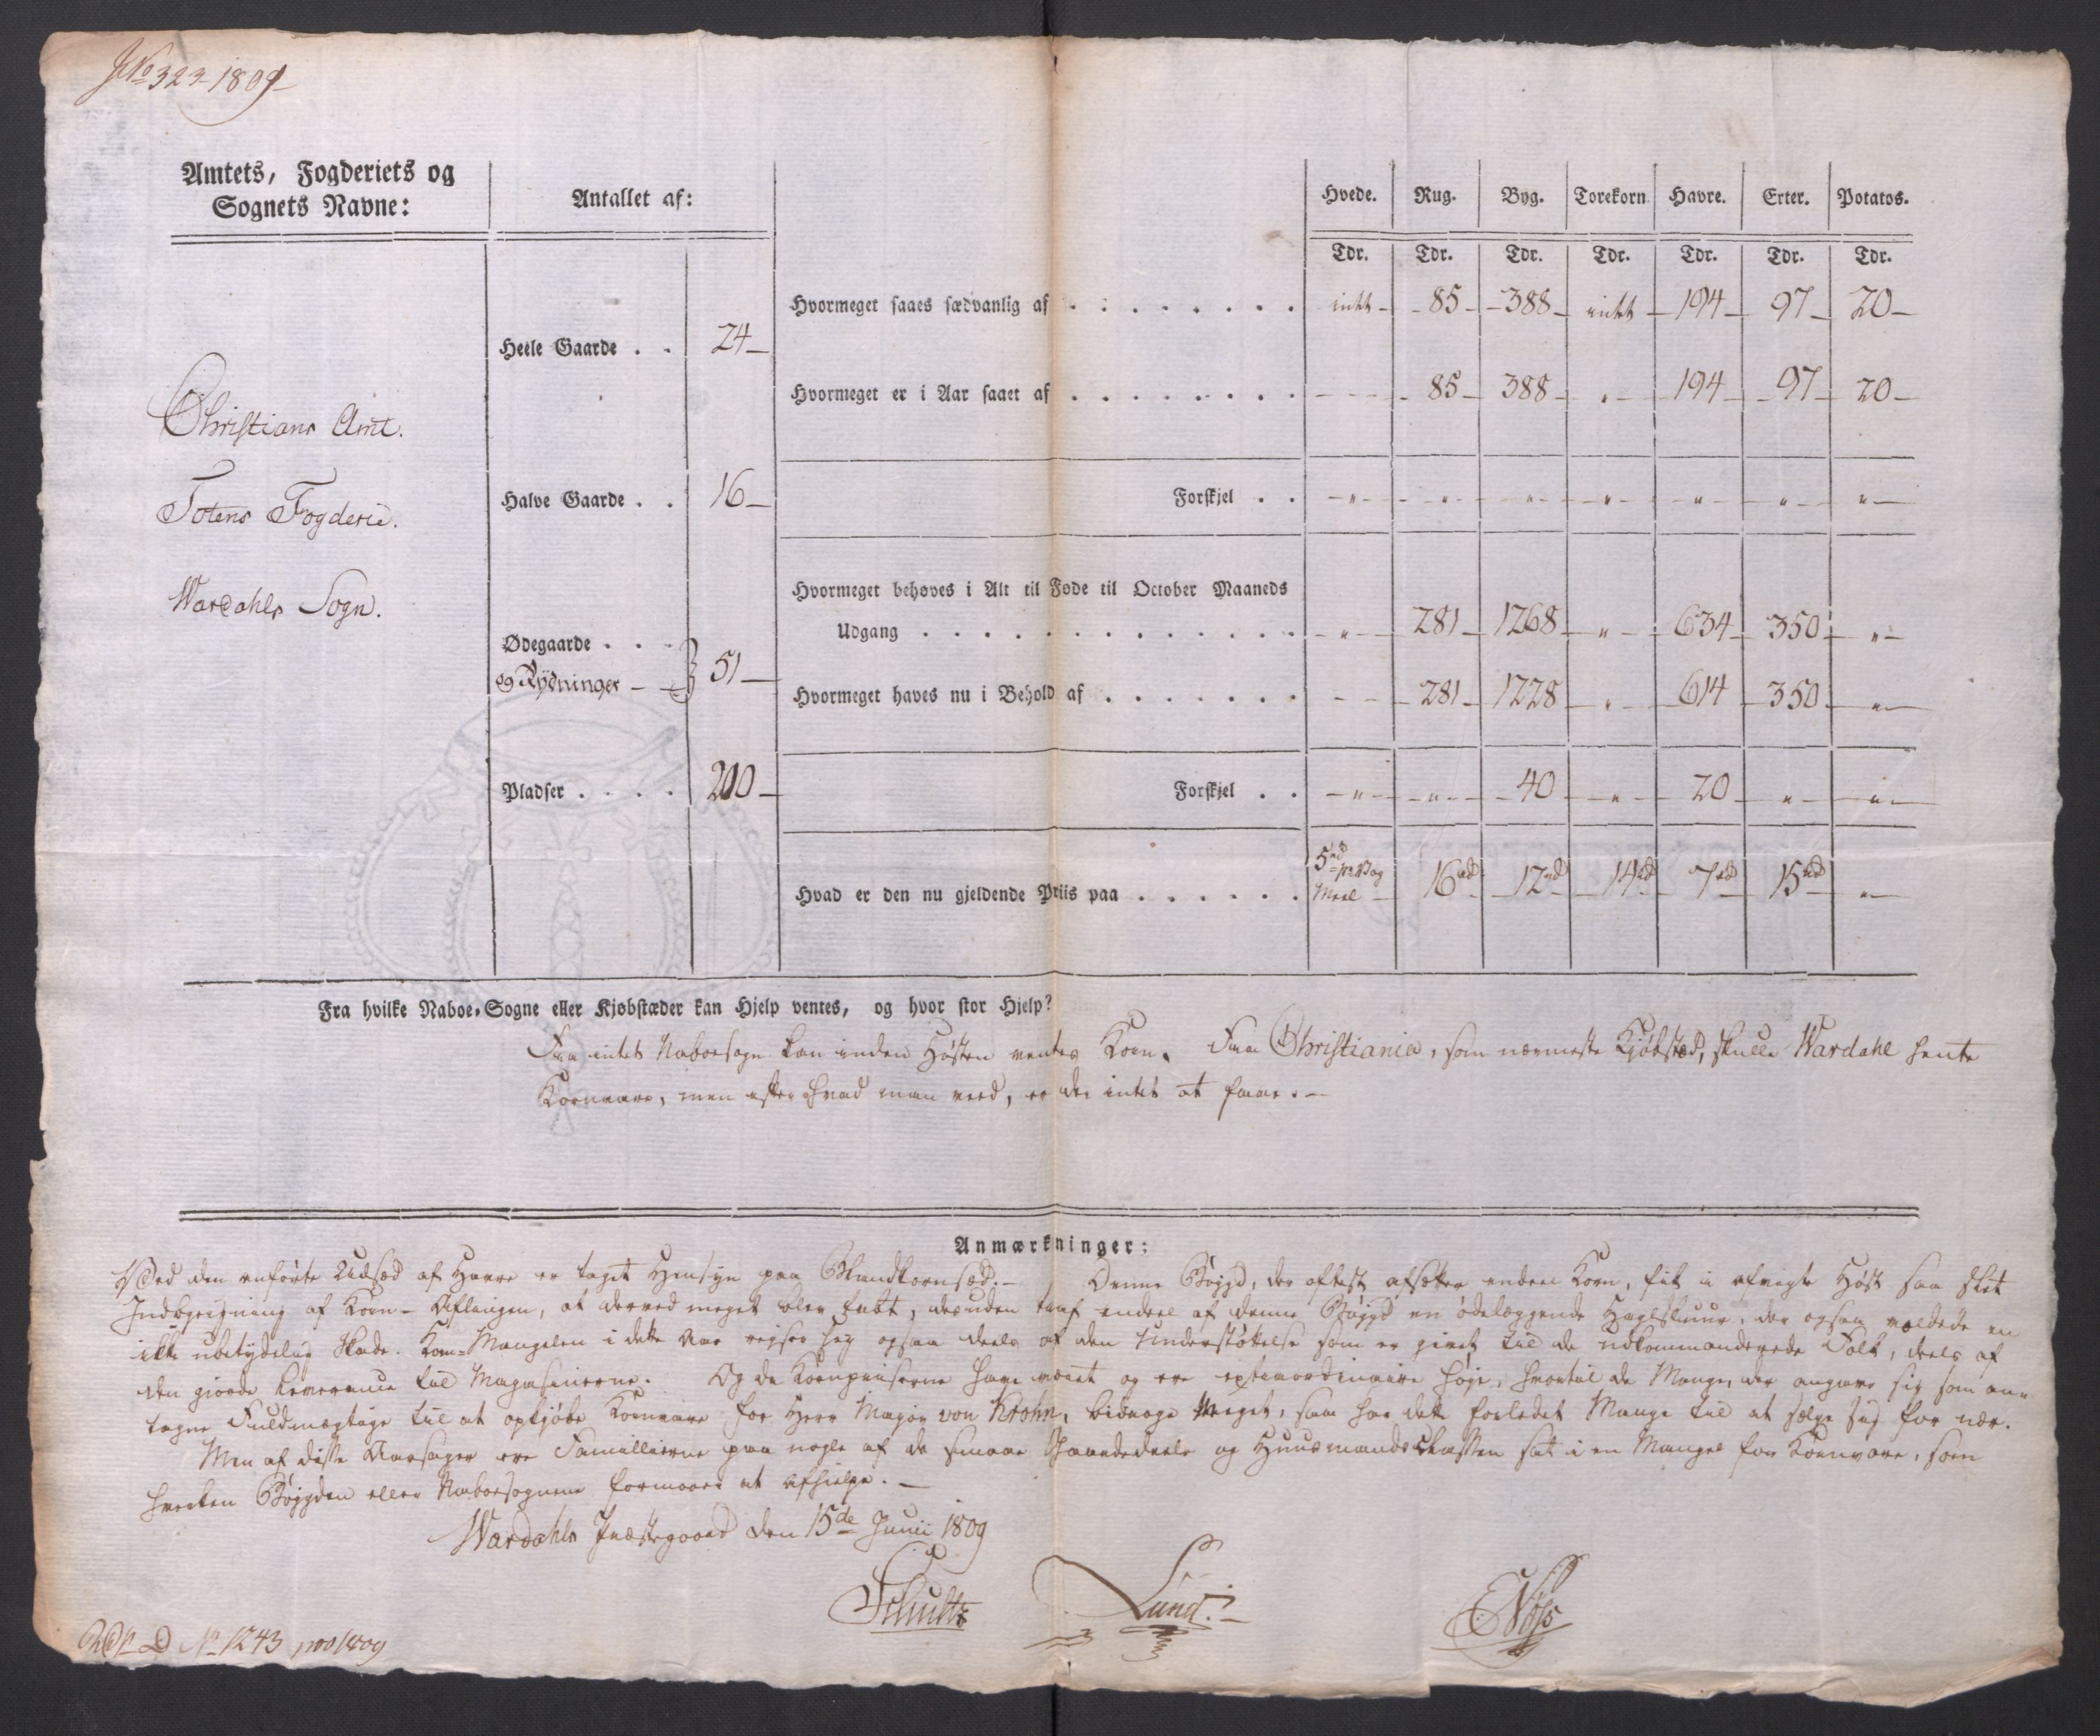 JNo 323-1809
Amtets, Fogderiets og
Sognets Navne:
Antallet af:
Hvede. Rug. Byg. Torekorn Havre. Erter. Potatos.
Tdr. Tdr. Tdr. Tdr. Tdr. Tdr. Tdr.
Hvormeget saaes sædvanlig af . . . . . . . . intet - 85 - 388 - intet - 194 - 97 - 20 -
Heele Gaarde . . 24 -
Hvormeget er i Aar saaet af . . . . . . . . - - - 85 - 388 - „ - 194 - 97 - 20 -
Christians Amt.
Totens Fogderie.
Wardahls Sogn.
Halve Gaarde . . 16 -
Forskjel . . - „ - - „ - - „ - - „ - - „ - - „ - „ -
Hvormeget behøves i Alt til Føde til October Maaneds
Udgang . . . . . . . . . . . . . - „ - 281 - 1268 - „ - 634 - 350 - „ -
Ødegaarde . . .
og Rydninger - - 51 -
Hvormeget haves nu i Behold af . . . . . . . - - 281 - 1228 - „ - 614 - 350 - „ -
Pladser . . . . 200 -
Forskjel . . - „ - - „ - - 40 - „ - 20 - „ - „ -
Hvad er den nu gjeldende Priis paa . . . . . . 5 rd pr Vog Meel - 16 rd 12 rd 14 rd 7 rd 15 rd „ -
Fra hvilke Naboe-Sogne eller Kjøbstæder kan Hjelp ventes, og hvor stor Hjelp?
Fra intet Naboesogn kan inden Høsten ventes Korn. Fra Christiania, som nærmeste Kjøbstæd, skulle Wardahl hente
Kornvare, men efter hvad man veed, er der intet at faae. -
Anmærkninger:
Ved den anførte Udsæd af Havre er taget Hensyn paa Blandkornsæd. - Denne Bøygd, der oftest afsætter endeel Korn, fik i afvigte Høst saa slet
Indbjergning af Korn-Aflingen, at derved meget blev tabt, desuden traf endeel af denne Bøygd en ødelæggende Haglskuur, der ogsaa voldede en
ikke ubetydelig Skade. Korn-Mangelen i dette Aar rejser sig ogsaa deels af den Understøttelse som er givet til de udkommanderede Folk, deels af
den giorde Leverance til Magasinerne. Og da Kornpriserne have været og ere extraordinaire høje, hvortil de Mange, der angave sig som an-
tagne Fuldmægtige til at opkjøbe Kornvare for Herr Major von Krohn, bidroge Meget, saa har dette forledet Mange til at sælge sig for nær.
Men af disse Aarsager ere Familierne paa nogle af de smaae Gaardedeele og Huusmandsklassen sat i en Mangel for Kornvare, som
hverken Bøygden eller Naboesognene formaaer at afhielpe. -
Wardahls Præstegaard den 15de Junii 1809
Schultz Lund. E Voss
No 1243 pro 1809